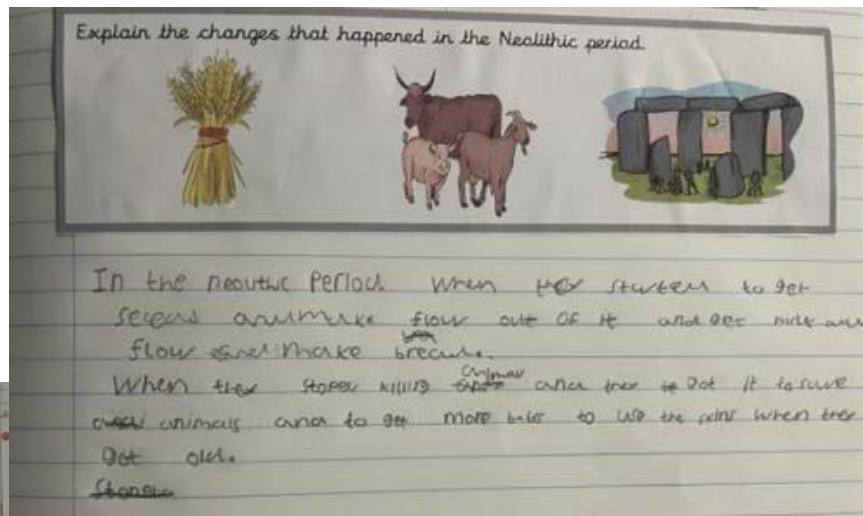 Explain the changes that happened in the Neolithic period.
In the neolithic Period when they started to get
and make flow out of it and get milk and
flow and make
When they stoped killing animals and they got it to
animals and to get more to use the when they
got old.